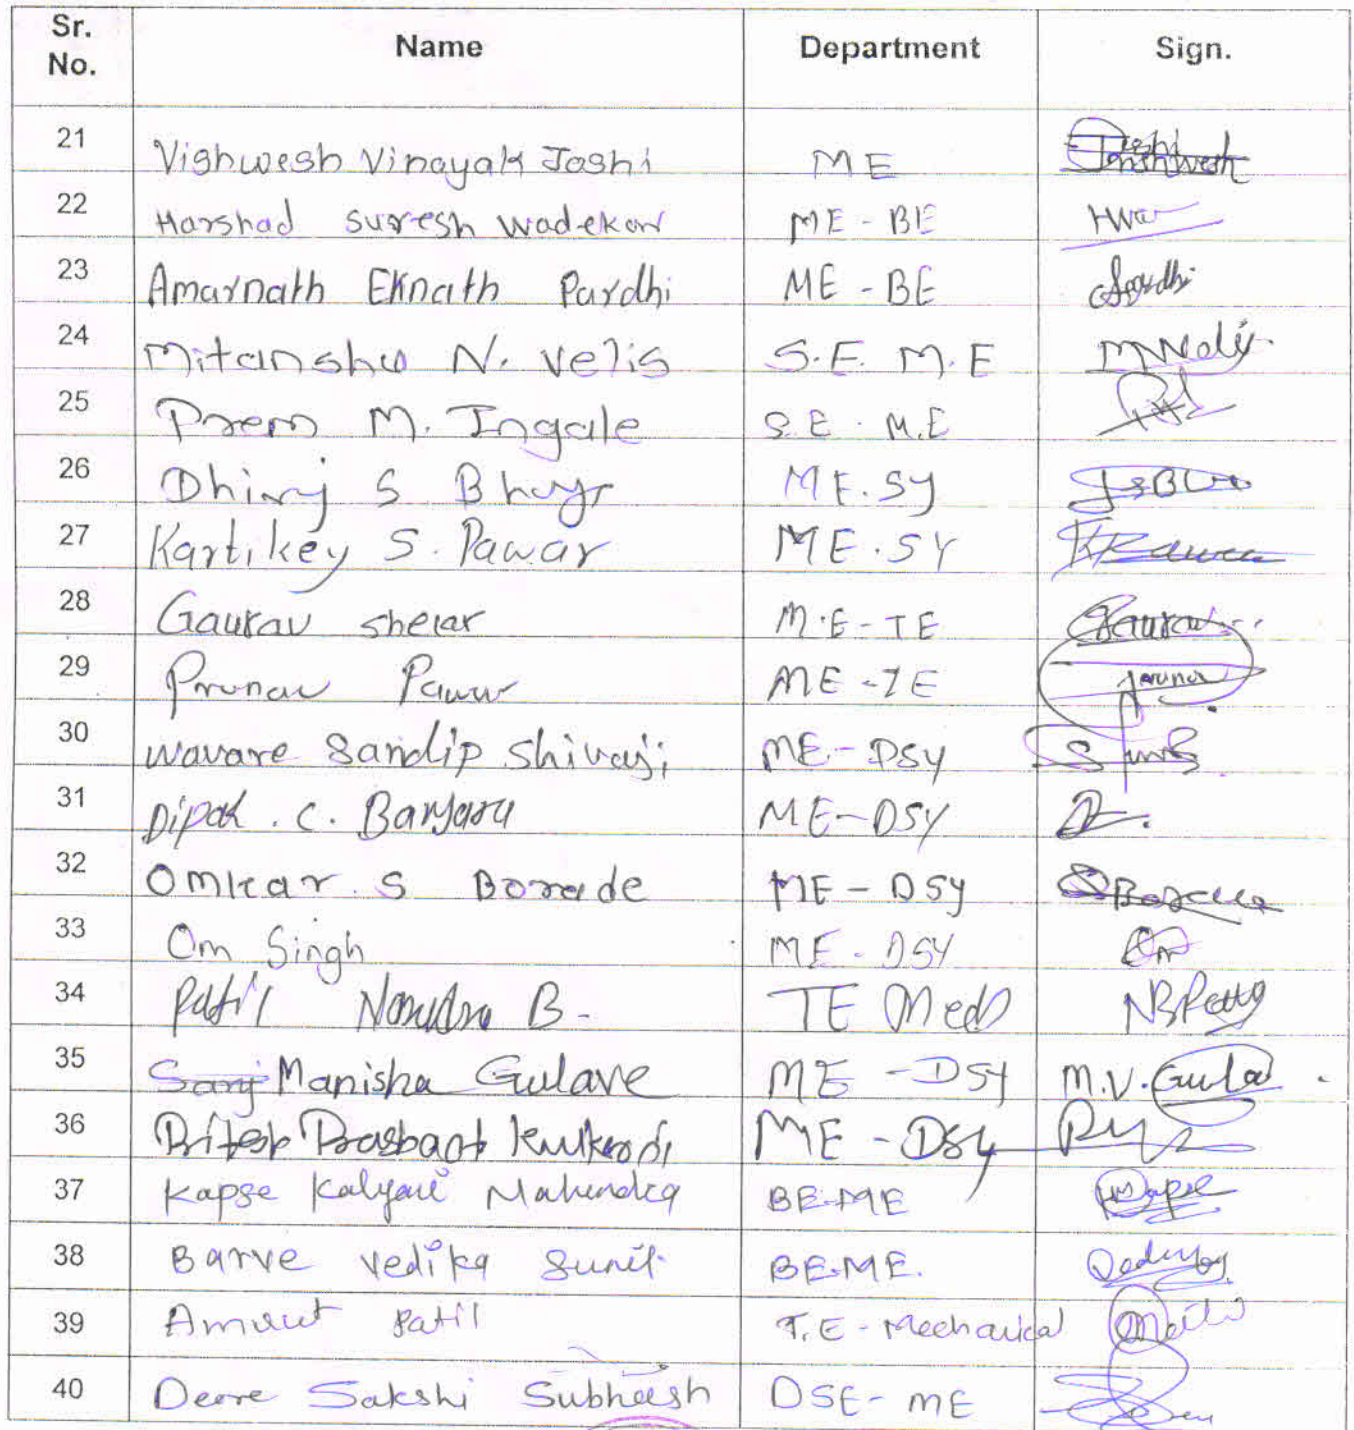 Sr. No. Name Department Sign.
21 Vishwesh Vinayak Joshi ME
22 Harshad Suresh Wadekar ME - BE
23 Amarnath Eknath Pardhi ME - BE Pardhi
24 Mitanshu N. Velis S.E. M.E
25 Prem M. Ingale S.E. M.E
26 Dhiraj S Bhuyr ME.SY
27 Kartikey S. Pawar ME.SY
28 Gaurav Shelar M.E - TE Gaurav
29 Pranav Pawar ME - TE Pranav
30 Wavare Sandip Shivaji ME - DSY
31 Dipak . C. Banjara ME - DSY
32 Omkar S Borade ME - DSY
33 Om Singh ME - DSY Om
34 Patil Narendra B - TE Med
35 Manisha Gulave ME - DSY M.V. Gula
36 Pritesh Prashant ME - DSY
37 Kapse Kalyani Mahendra BE-ME
38 Barve Vedika Sunil BE.ME.
39 Amrut Patil T.E - Mechanical
40 Deore Sakshi Subhash DSE - ME